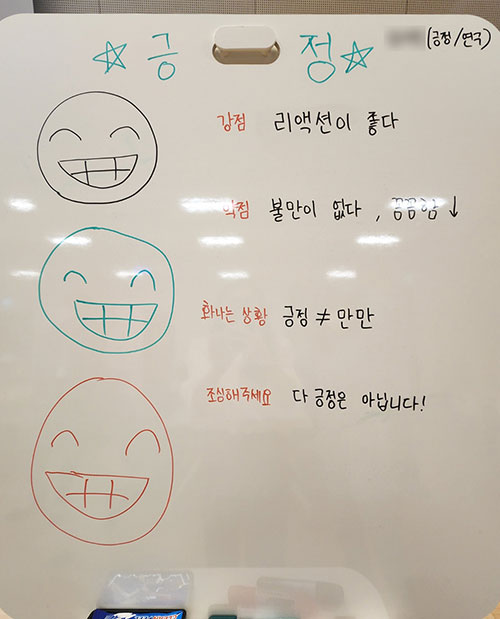 ☆긍 정☆
(긍정/연극)
강점 리액션이 좋다
약점 불만이 없다, 꼼꼼함↓
화나는 상황 긍정≠만만
조심해주세요 다 긍정은 아닙니다!